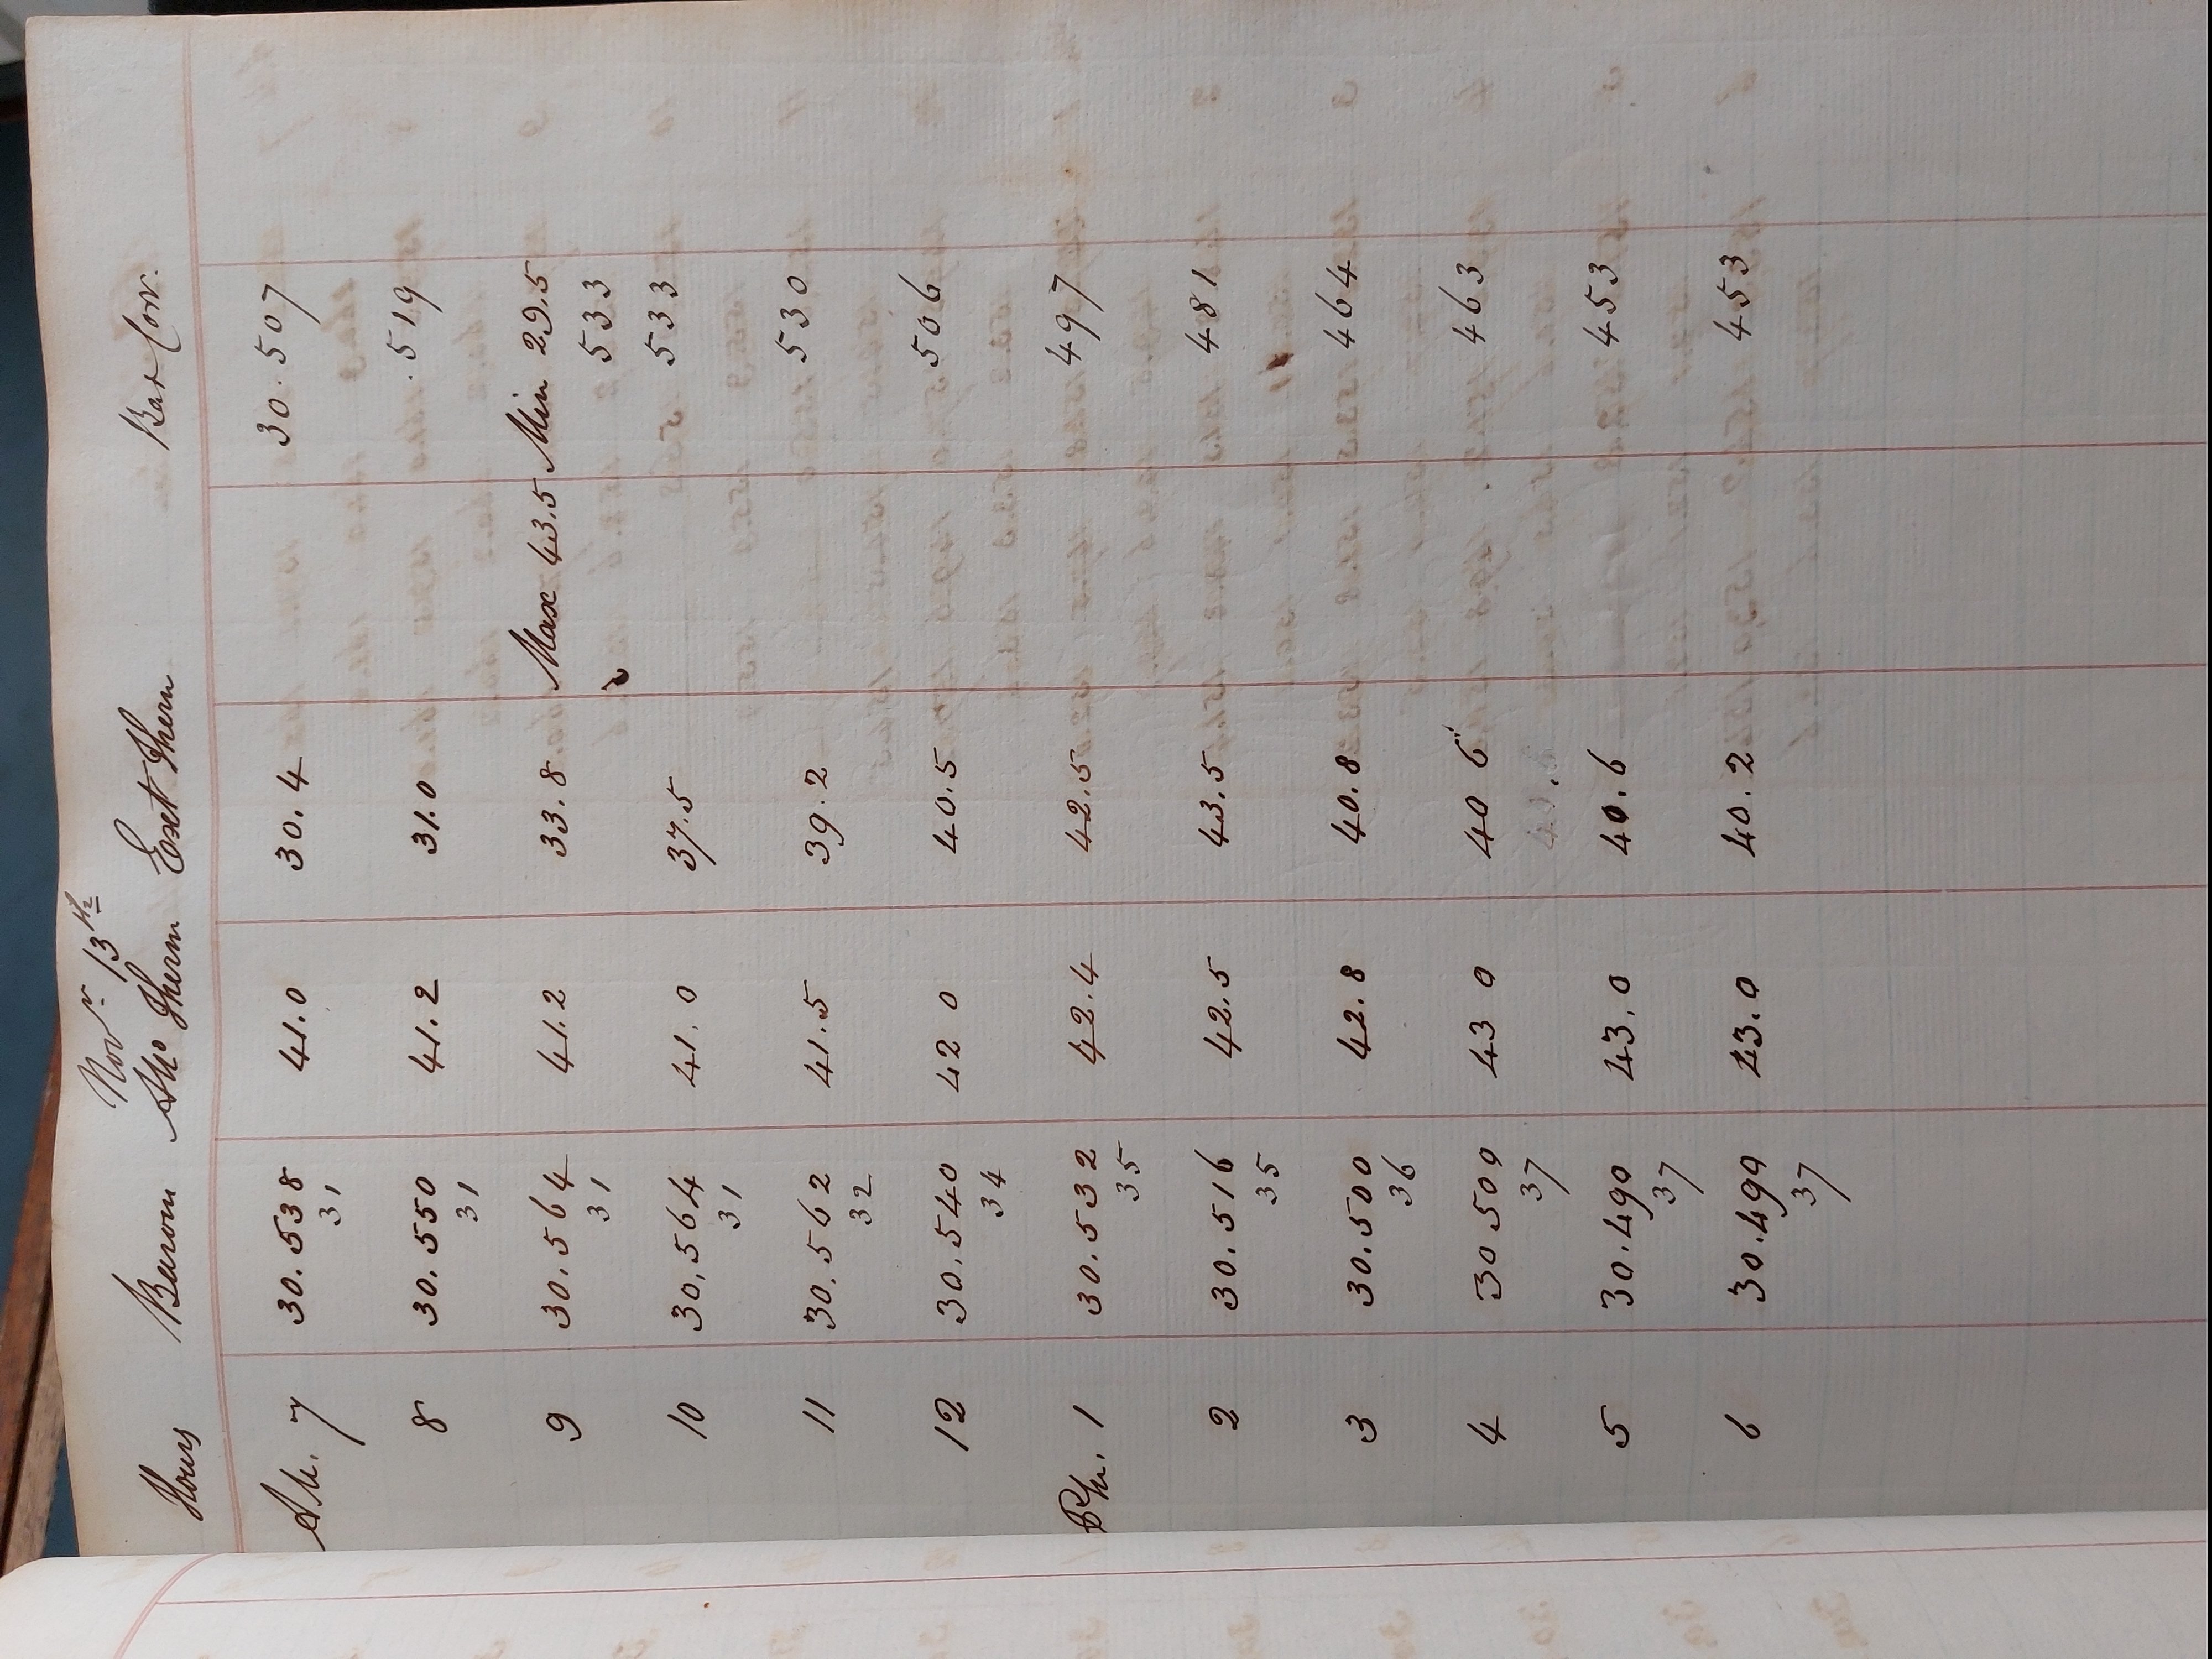 Novr 13th
Hours Barom Atto Therm Ext Therm Bar Corr.
AM. 7 30.538 41.0 30.4 30.507
31
8 30.550 41.2 31.0 .519
31
9 30.564 41.2 33.8 Max 43.5 Min 29.5
31 533
10 30,564 41.0 37.5 533
31
11 30.562 41.5 39.2 530
32
12 30.540 42 0 40.5 506
34
PM. 1 30.532 42.4 42.5 497
35
2 30.516 42.5 43.5 481
35
3 30.500 42.8 40.8 464
36
4 30 500 43 0 40 6 463
37
5 30.490 43.0 40.6 453
37
6 30.490 43.0 40.2 453
37